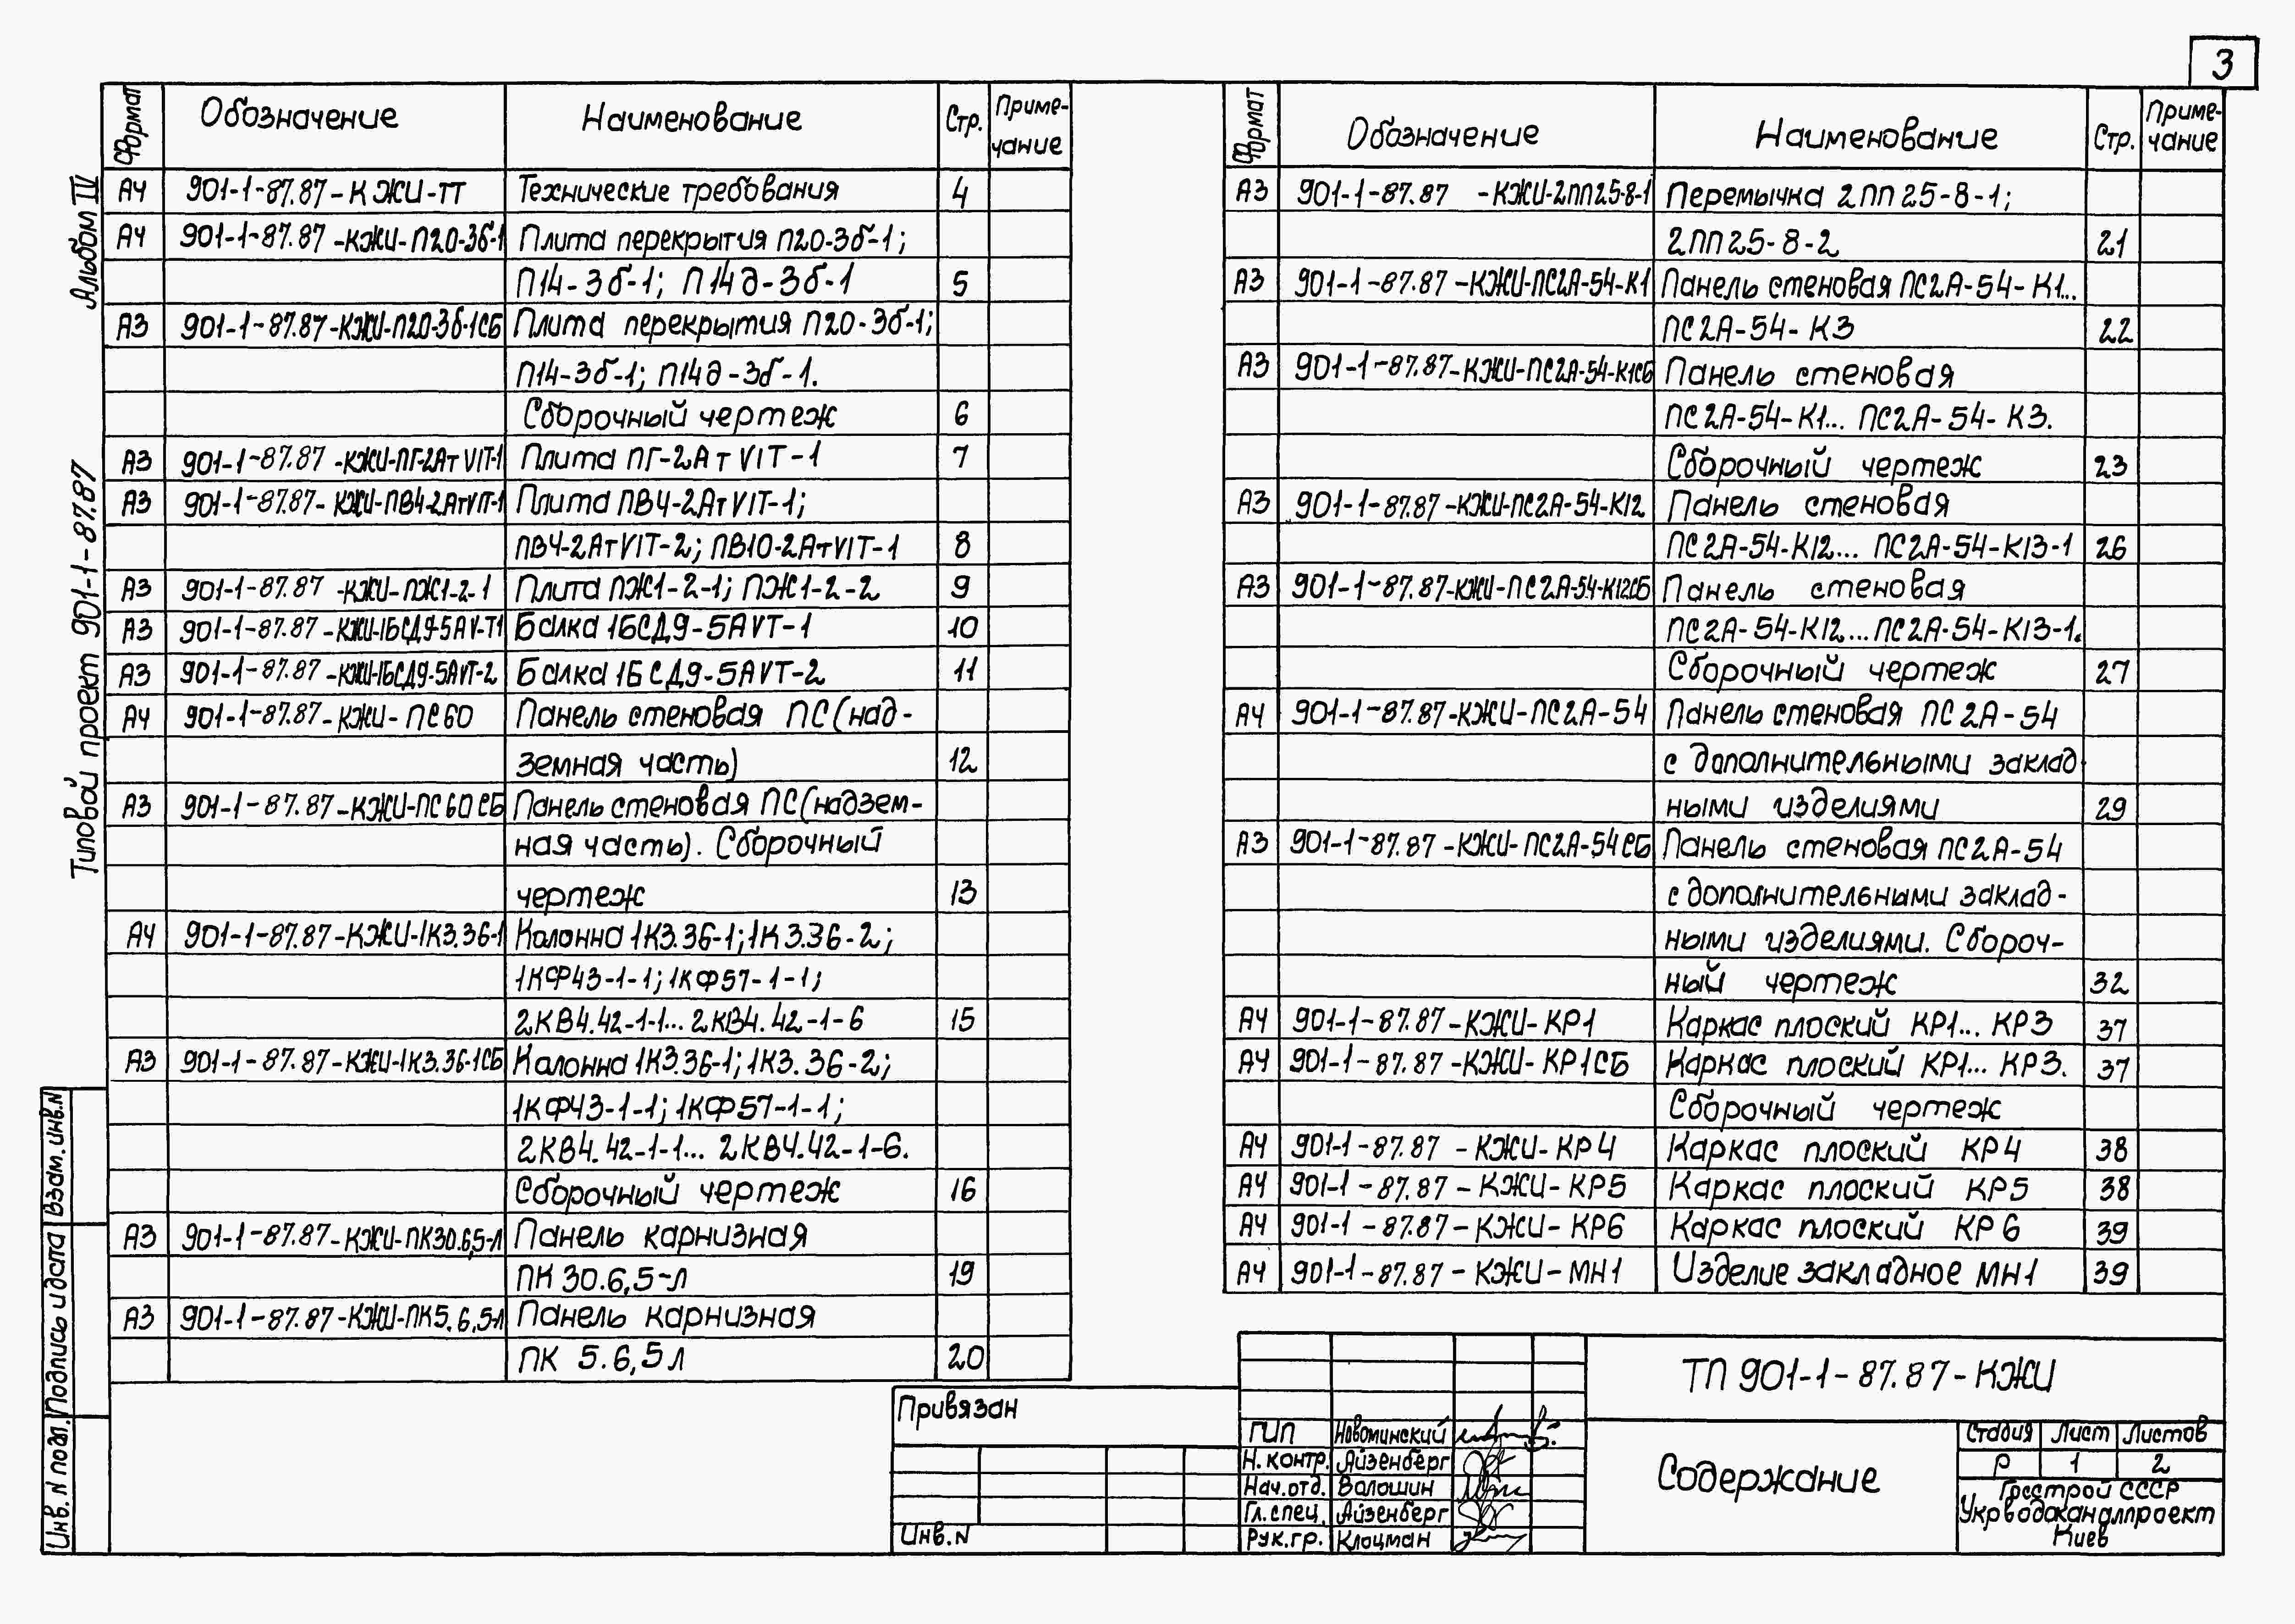 3
Альбом IV
Типовой проект 901-1-87.87
Формат Обозначение Наименование Стр. Приме-
чание
А4 901-1-87.87-КЖИ-ТТ Технические требования 4
А4 901-1-87.87-КЖИ-П20-3б-1 Плита перекрытия П20-3б-1;
П14-3б-1; П14д-3б-1 5
А3 901-1-87.87-КЖИ-П20-3б-1СБ Плита перекрытия П20-3б-1;
П14-3б-1; П14д-3б-1.
Сборочный чертеж 6
А3 901-1-87.87-КЖИ-ПГ-2АтVIТ-1 Плита ПГ-2АтVIТ-1 7
А3 901-1-87.87-КЖИ-ПВ4-2АтVIТ-1 Плита ПВ4-2АтVIТ-1;
ПВ4-2АтVIТ-2; ПВ10-2АтVIТ-1 8
А3 901-1-87.87-КЖИ-ПЖ1-2-1 Плита ПЖ1-2-1; ПЖ1-2-2 9
А3 901-1-87.87-КЖИ-1БСД9-5АV-Т1 Балка 1БСД9-5АVТ-1 10
А3 901-1-87.87-КЖИ-1БСД9-5АVТ-2 Балка 1БСД9-5АVТ-2 11
А4 901-1-87.87-КЖИ-ПС60 Панель стеновая ПС (над-
земная часть) 12
А3 901-1-87.87-КЖИ-ПС60СБ Панель стеновая ПС (надзем-
ная часть). Сборочный
чертеж 13
А4 901-1-87.87-КЖИ-1К3.36-1 Колонна 1К3.36-1; 1К3.36-2;
1КФ43-1-1; 1КФ57-1-1;
2КВ4.42-1-1... 2КВ4.42-1-6 15
А3 901-1-87.87-КЖИ-1К3.36-1СБ Колонна 1К3.36-1; 1К3.36-2;
1КФ43-1-1; 1КФ57-1-1;
2КВ4.42-1-1... 2КВ4.42-1-6.
Сборочный чертеж 16
А3 901-1-87.87-КЖИ-ПК30.6,5-Л Панель карнизная
ПК 30.6,5-Л 19
А3 901-1-87.87-КЖИ-ПК5.6,5-Л Панель карнизная
ПК 5.6,5Л 20
Формат Обозначение Наименование Стр. Приме-
чание
А3 901-1-87.87 -КЖИ-2ПП25-8-1 Перемычка 2ПП25-8-1;
2ПП25-8-2 21
А3 901-1-87.87-КЖИ-ПС2А-54-К1 Панель стеновая ПС2А-54-К1...
ПС2А-54-К3 22
А3 901-1-87.87-КЖИ-ПС2А-54-К1СБ Панель стеновая
ПС2А-54-К1... ПС2А-54-К3.
Сборочный чертеж 23
А3 901-1-87.87-КЖИ-ПС2А-54-К12 Панель стеновая
ПС2А-54-К12... ПС2А-54-К13-1 26
А3 901-1-87.87-КЖИ-ПС2А-54-К12СБ Панель стеновая
ПС2А-54-К12... ПС2А-54-К13-1.
Сборочный чертеж 27
А4 901-1-87.87-КЖИ-ПС2А-54 Панель стеновая ПС2А-54
с дополнительными заклад-
ными изделиями 29
А3 901-1-87.87-КЖИ-ПС2А-54СБ Панель стеновая ПС2А-54
с дополнительными заклад-
ными изделиями. Сбороч-
ный чертеж 32
А4 901-1-87.87-КЖИ-КР1 Каркас плоский КР1... КР3 37
А4 901-1-87.87-КЖИ-КР1СБ Каркас плоский КР1... КР3. 37
Сборочный чертеж
А4 901-1-87.87-КЖИ-КР4 Каркас плоский КР4 38
А4 901-1-87.87-КЖИ-КР5 Каркас плоский КР5 38
А4 901-1-87.87-КЖИ-КР6 Каркас плоский КР6 39
А4 901-1-87.87-КЖИ-МН1 Изделие закладное МН1 39
Взам. инв. N
Подпись и дата
Инв. N подл.
Привязан
Инв. N
ГИП Новоминский
Н. контр. Айзенберг
Нач. отд. Волошин
Гл. спец. Айзенберг
Рук. гр. Клоцман
ТП 901-1-87.87-КЖИ
Содержание
Стадия Лист Листов
Р 1 2
Госстрой СССР
Укрводоканалпроект
Киев